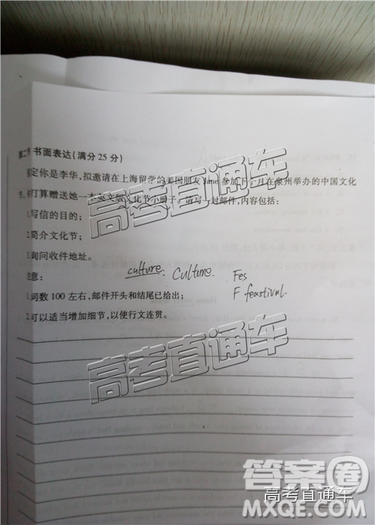 书面表达(满分25分)
定你是李华,拟邀请在上海留学的美国朋友Jane参加下个月在泉州举办的中国文化
打算赠送她一本
化节小册子。请写一封邮件,内容包括:
写信的目的;
简介文化节;
询问收件地址。
意:
culture. Culture. Fes
词数100左右,邮件开头和结尾已给出;
F feastival.
可以适当增加细节,以使行文连贯。
高考直通车
高考直通车
高考直通车
答案圈
高考直通车